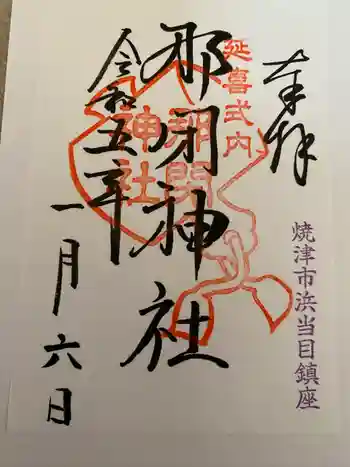 奉拝
延喜式内
焼津市浜当目鎮座
那閇神社
那閇神社
令和五年
一月六日